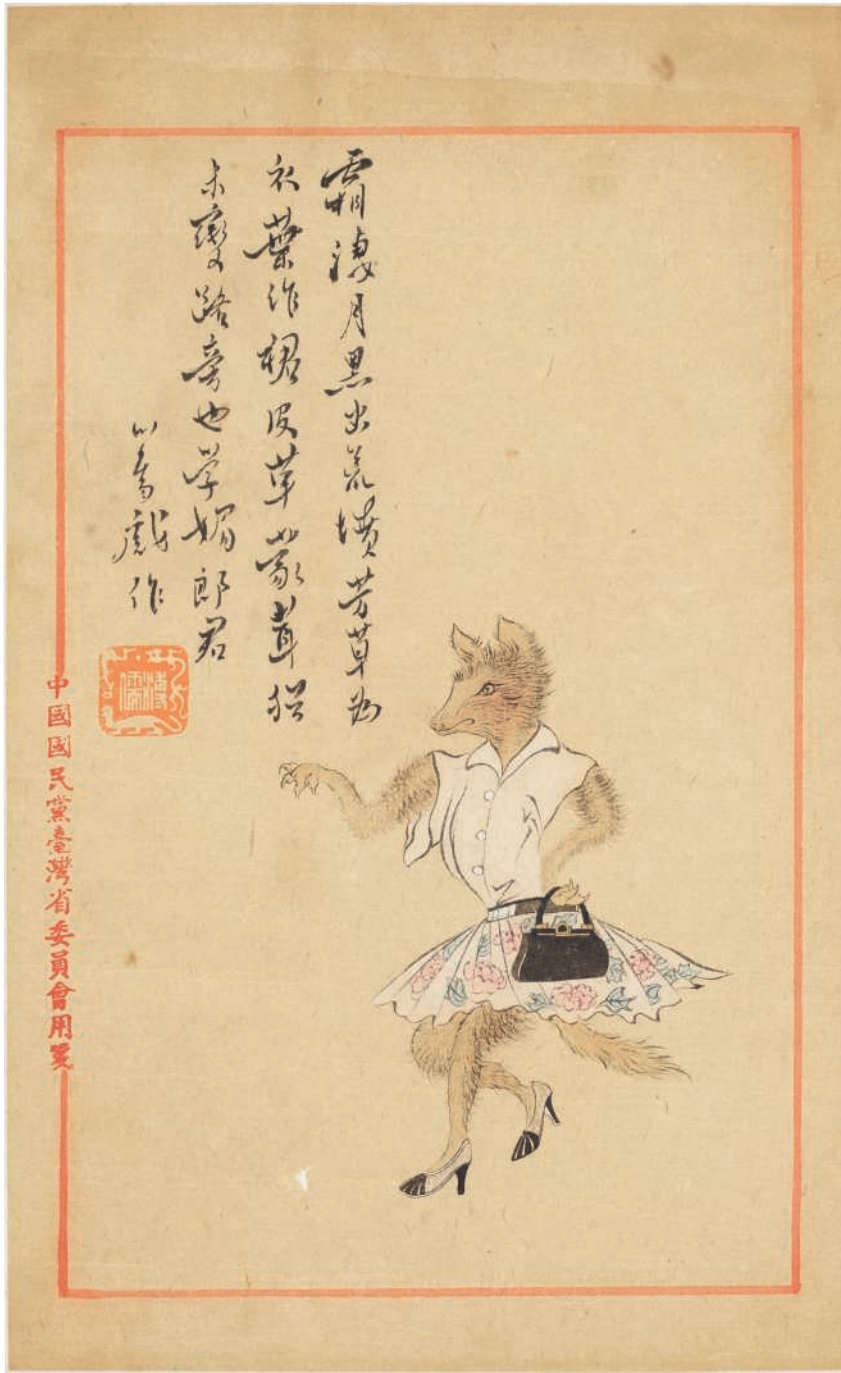 霜淒月黑出荒墳芳草為
衣葉作裙皮革蒙茸猶
未變路旁也學媚郎君
心畬戲作
溥儒
中國國民黨臺灣省委員會用箋